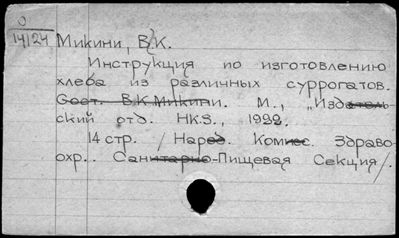 О
14/24
Микини, В.К.
Инструкция по изготовлению
хлеба из различных суррогатов.
Сост. В.К Микини. М., "Издатель-
ский отд. НК.S., 1922.
14 стр. /Наред. Комис. Здраво-
охр.. Санитарно-Пищевая Секция/.